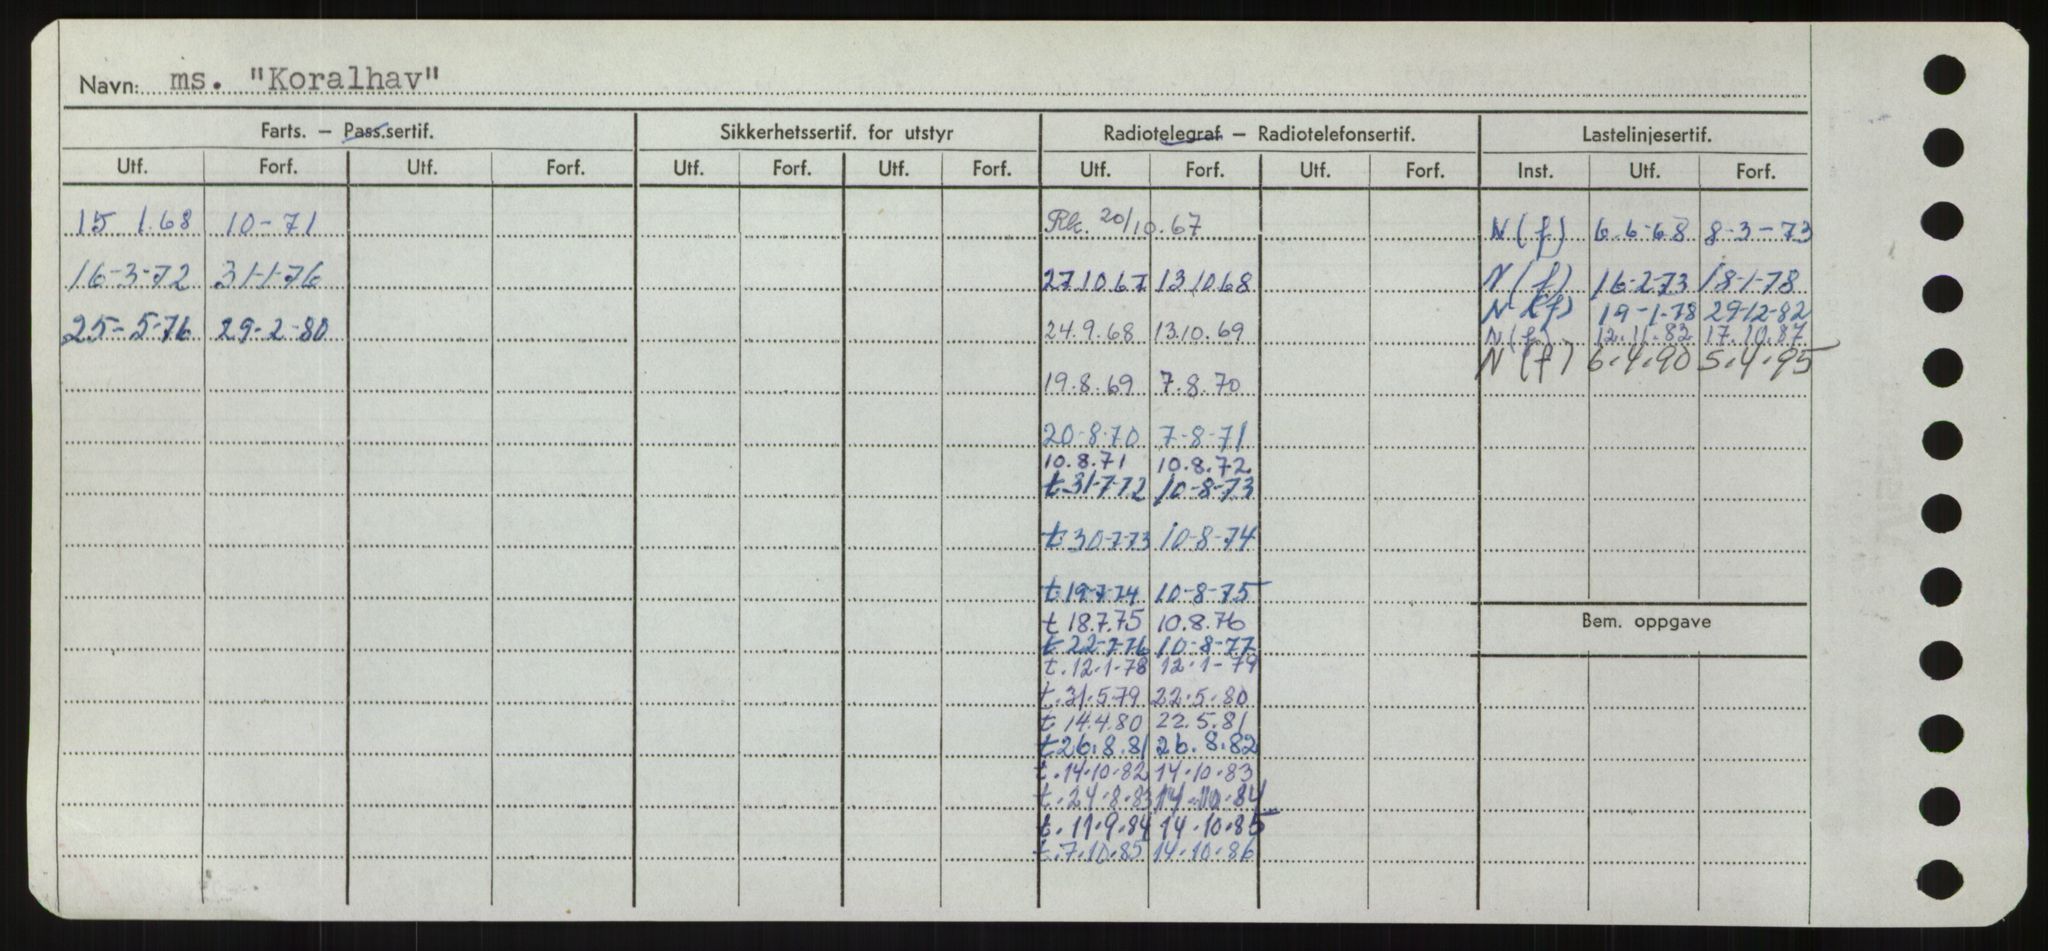 Navn: ms. "Koralhav"
Farts. – Pass.sertif. Sikkerhetssertif. for utstyr Radiotelegraf – Radiotelefonsertif. Lastelinjesertif.
Utf. Forf. Utf. Forf. Utf. Forf. Utf. Forf. Utf. Forf. Utf. Forf. Inst. Utf. Forf.
15 1.68 10-71 20/10.67 N(f) 6.6-68 8-3-73
16-3-72 31-1-76 27.10.67 13.10.68 N(f) 16-2-73 18-1-78
N(f) 19-1-78 29-12-82
25-5-76 29-2-80 24.9.68 13.10.69 N(f) 12.11.82 17.10.87
N(f) 6.4.90 5.4.95
19.8.69 7.8.70
20-8-70 7-8-71
10.8.71 10.8.72
t 31-7-72 10-8-73
t 30-7-73 10-8-74
t.19-7-74 10-8-75
t 18.7.75 10.8.76 Bem. oppgave
t 22-7-76 10-8-77
t.12.1-78 12.1-79
t.31.5-79 22.5.80
t 14.4.80 22.5.81
t 26.8.81 26.8.82
t.14.10.82 14.10.83
t.24.8.83 14.10.84
t.11.9.84 14.10.85
t.7.10.85 14.10.86